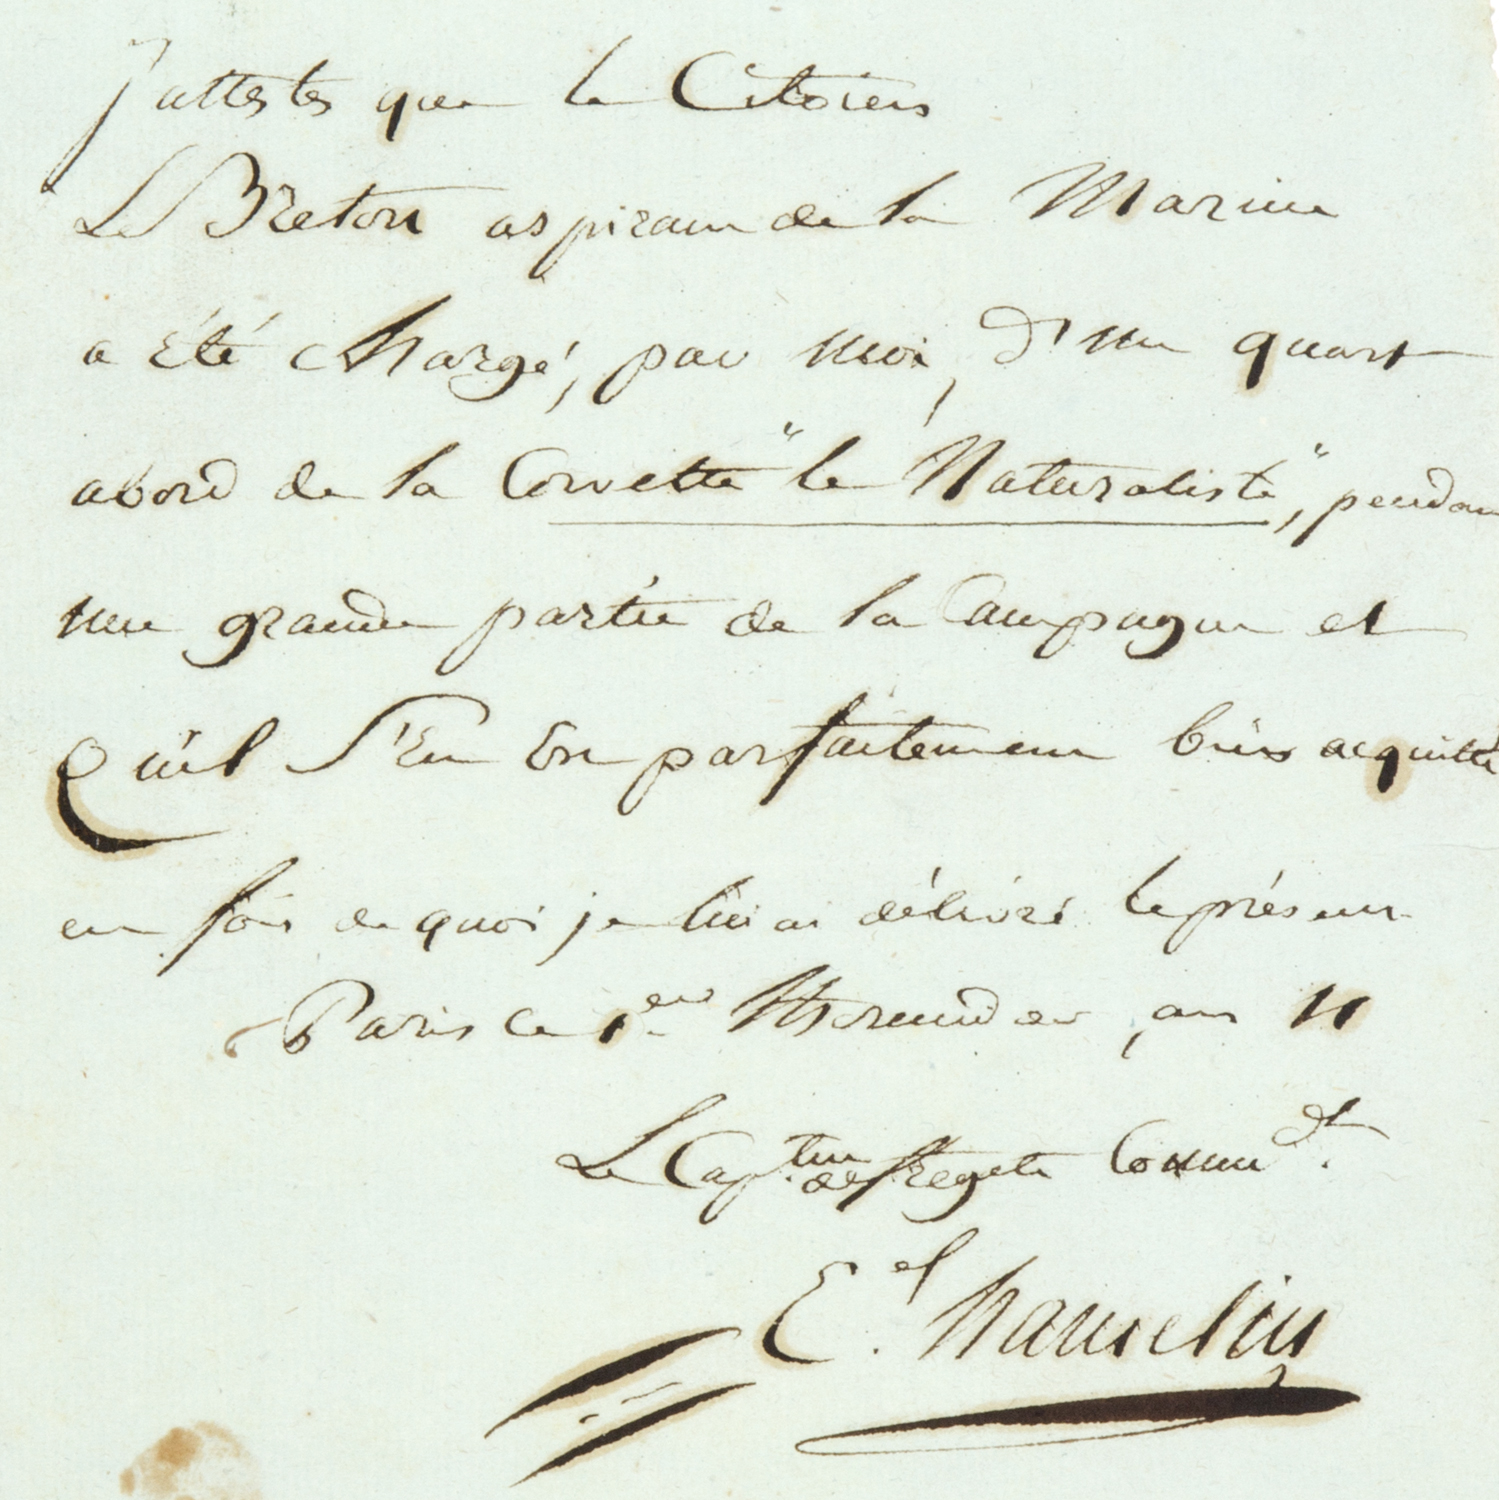 J'atteste que le Citoien
Le Breton aspirant de la Marine
a été chargé, par moi, d'un quart
abord de la Corvette "le Naturaliste", pendant
une grande partie de la Campagne et
Qu'il S'En En parfaitement bien acquitté
en foi de quoi je lui ai délivré le présent
Paris le 1er Thermidor, an 11
Le Captne de frégate Commdt.
E.el hamelin